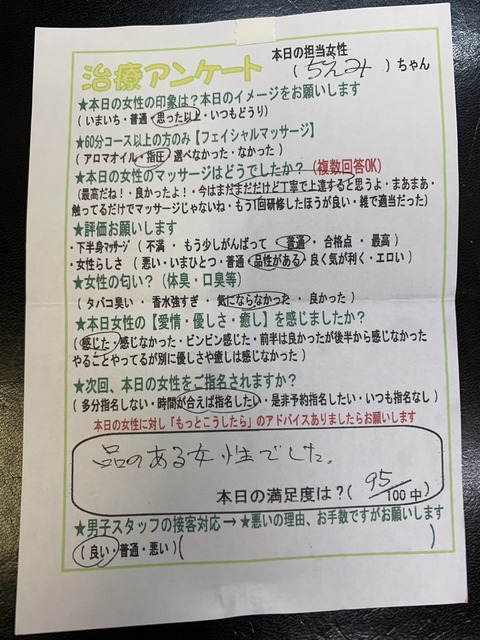 本日の担当女性
治療アンケート
( ちえみ ) ちゃん
★本日の女性の印象は?本日のイメージをお願いします
( いまいち・普通・思った以上・いつもどうり )
★60分コース以上の方のみ【フェイシャルマッサージ】
( アロマオイル・指圧・選べなかった・なかった )
★本日の女性のマッサージはどうでしたか?(複数回答OK)
(最高だね!・良かったよ!・今はまだまだだけど丁寧で上達すると思うよ・まあまあ・
触ってるだけでマッサージじゃないね・もう1回研修したほうが良い・雑で適当だった)
★評価お願いします
・下半身マッサージ ( 不満 ・ もう少しがんばって ・ 普通 ・ 合格点 ・ 最高 )
・女性らしさ ( 悪い・いまひとつ・普通・品性がある・良く気が利く・エロい )
★女性の匂い?(体臭・口臭等)
( タバコ臭い ・ 香水強すぎ ・ 気にならなかった ・ 良かった )
★本日女性の【愛情・優しさ・癒し】を感じましたか?
(感じた・感じなかった・ビンビン感じた・前半は良かったが後半から感じなかった
やることやってるが別に優しさや癒しは感じなかった )
★次回、本日の女性をご指名されますか?
( 多分指名しない・時間が合えば指名したい・是非予約指名したい・いつも指名なし )
本日の女性に対し「もっとこうしたら」のアドバイスありましたらお願いします
品のある女性でした。
本日の満足度は?( 95/100中 )
★男子スタッフの接客対応 → ★悪いの理由、お手数ですがお願いします
( 良い・普通・悪い ) ( )